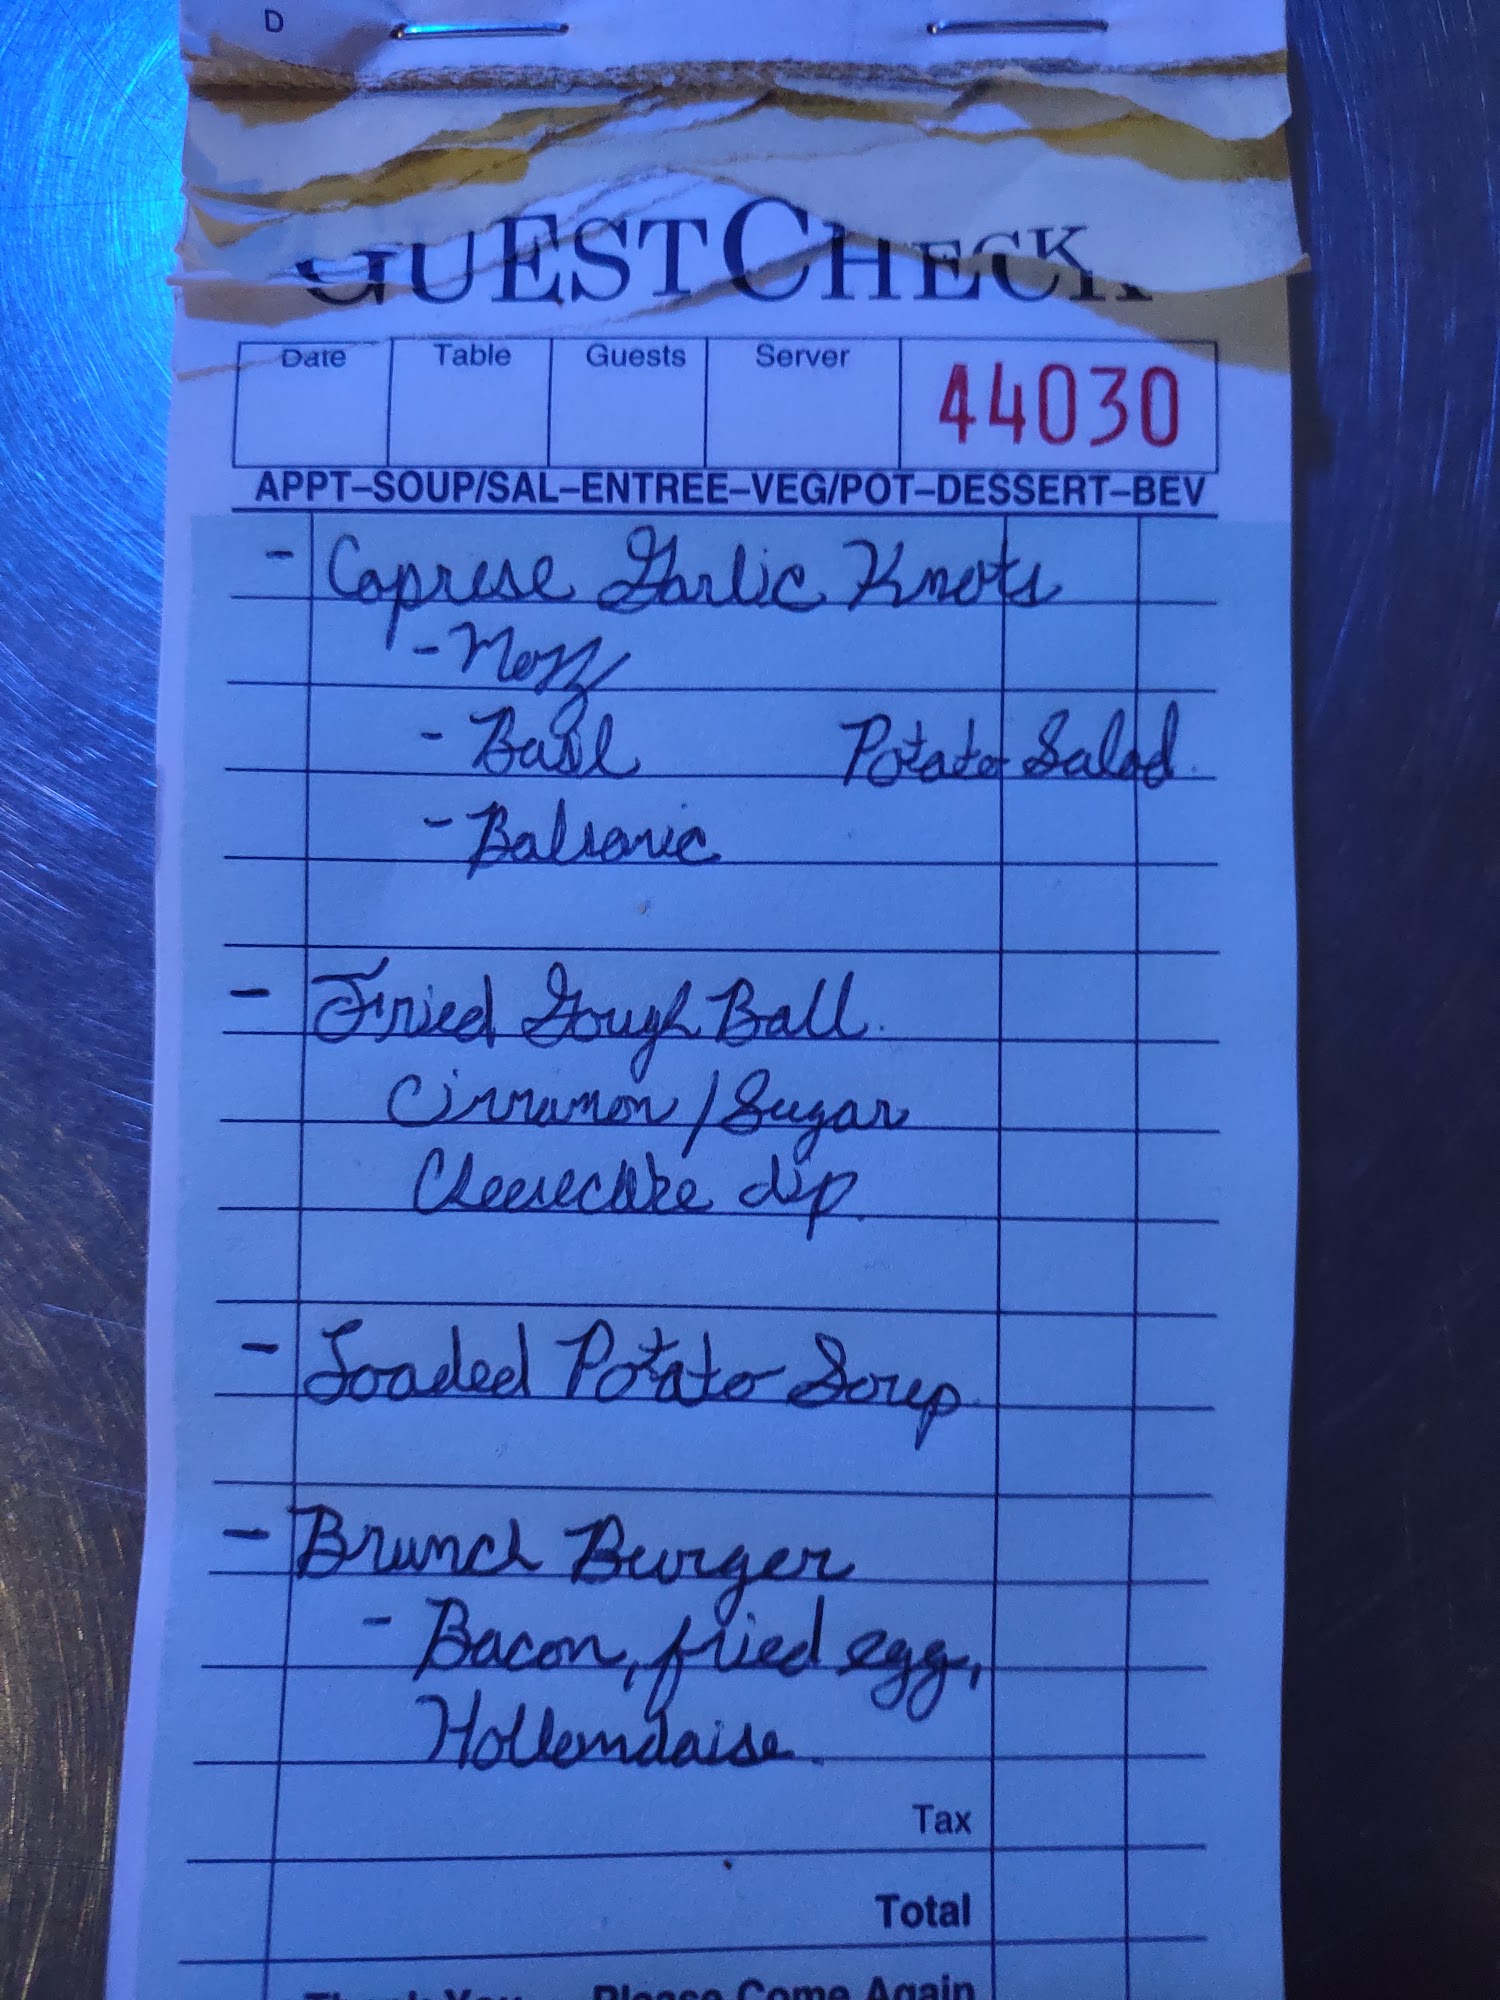 D
GUEST CHECK
Date Table Guests Server 44030
APPT–SOUP/SAL–ENTREE–VEG/POT–DESSERT–BEV
- Caprese Garlic Knots
- Mozz
- Basil Potato Salad.
- Balsamic
- Fried Dough Ball.
Cinnamon / Sugar
Cheesecake dip.
- Loaded Potato Soup.
- Brunch Burger
- Bacon, fried egg,
Hollandaise.
Tax
Total
Thank You Please Come Again